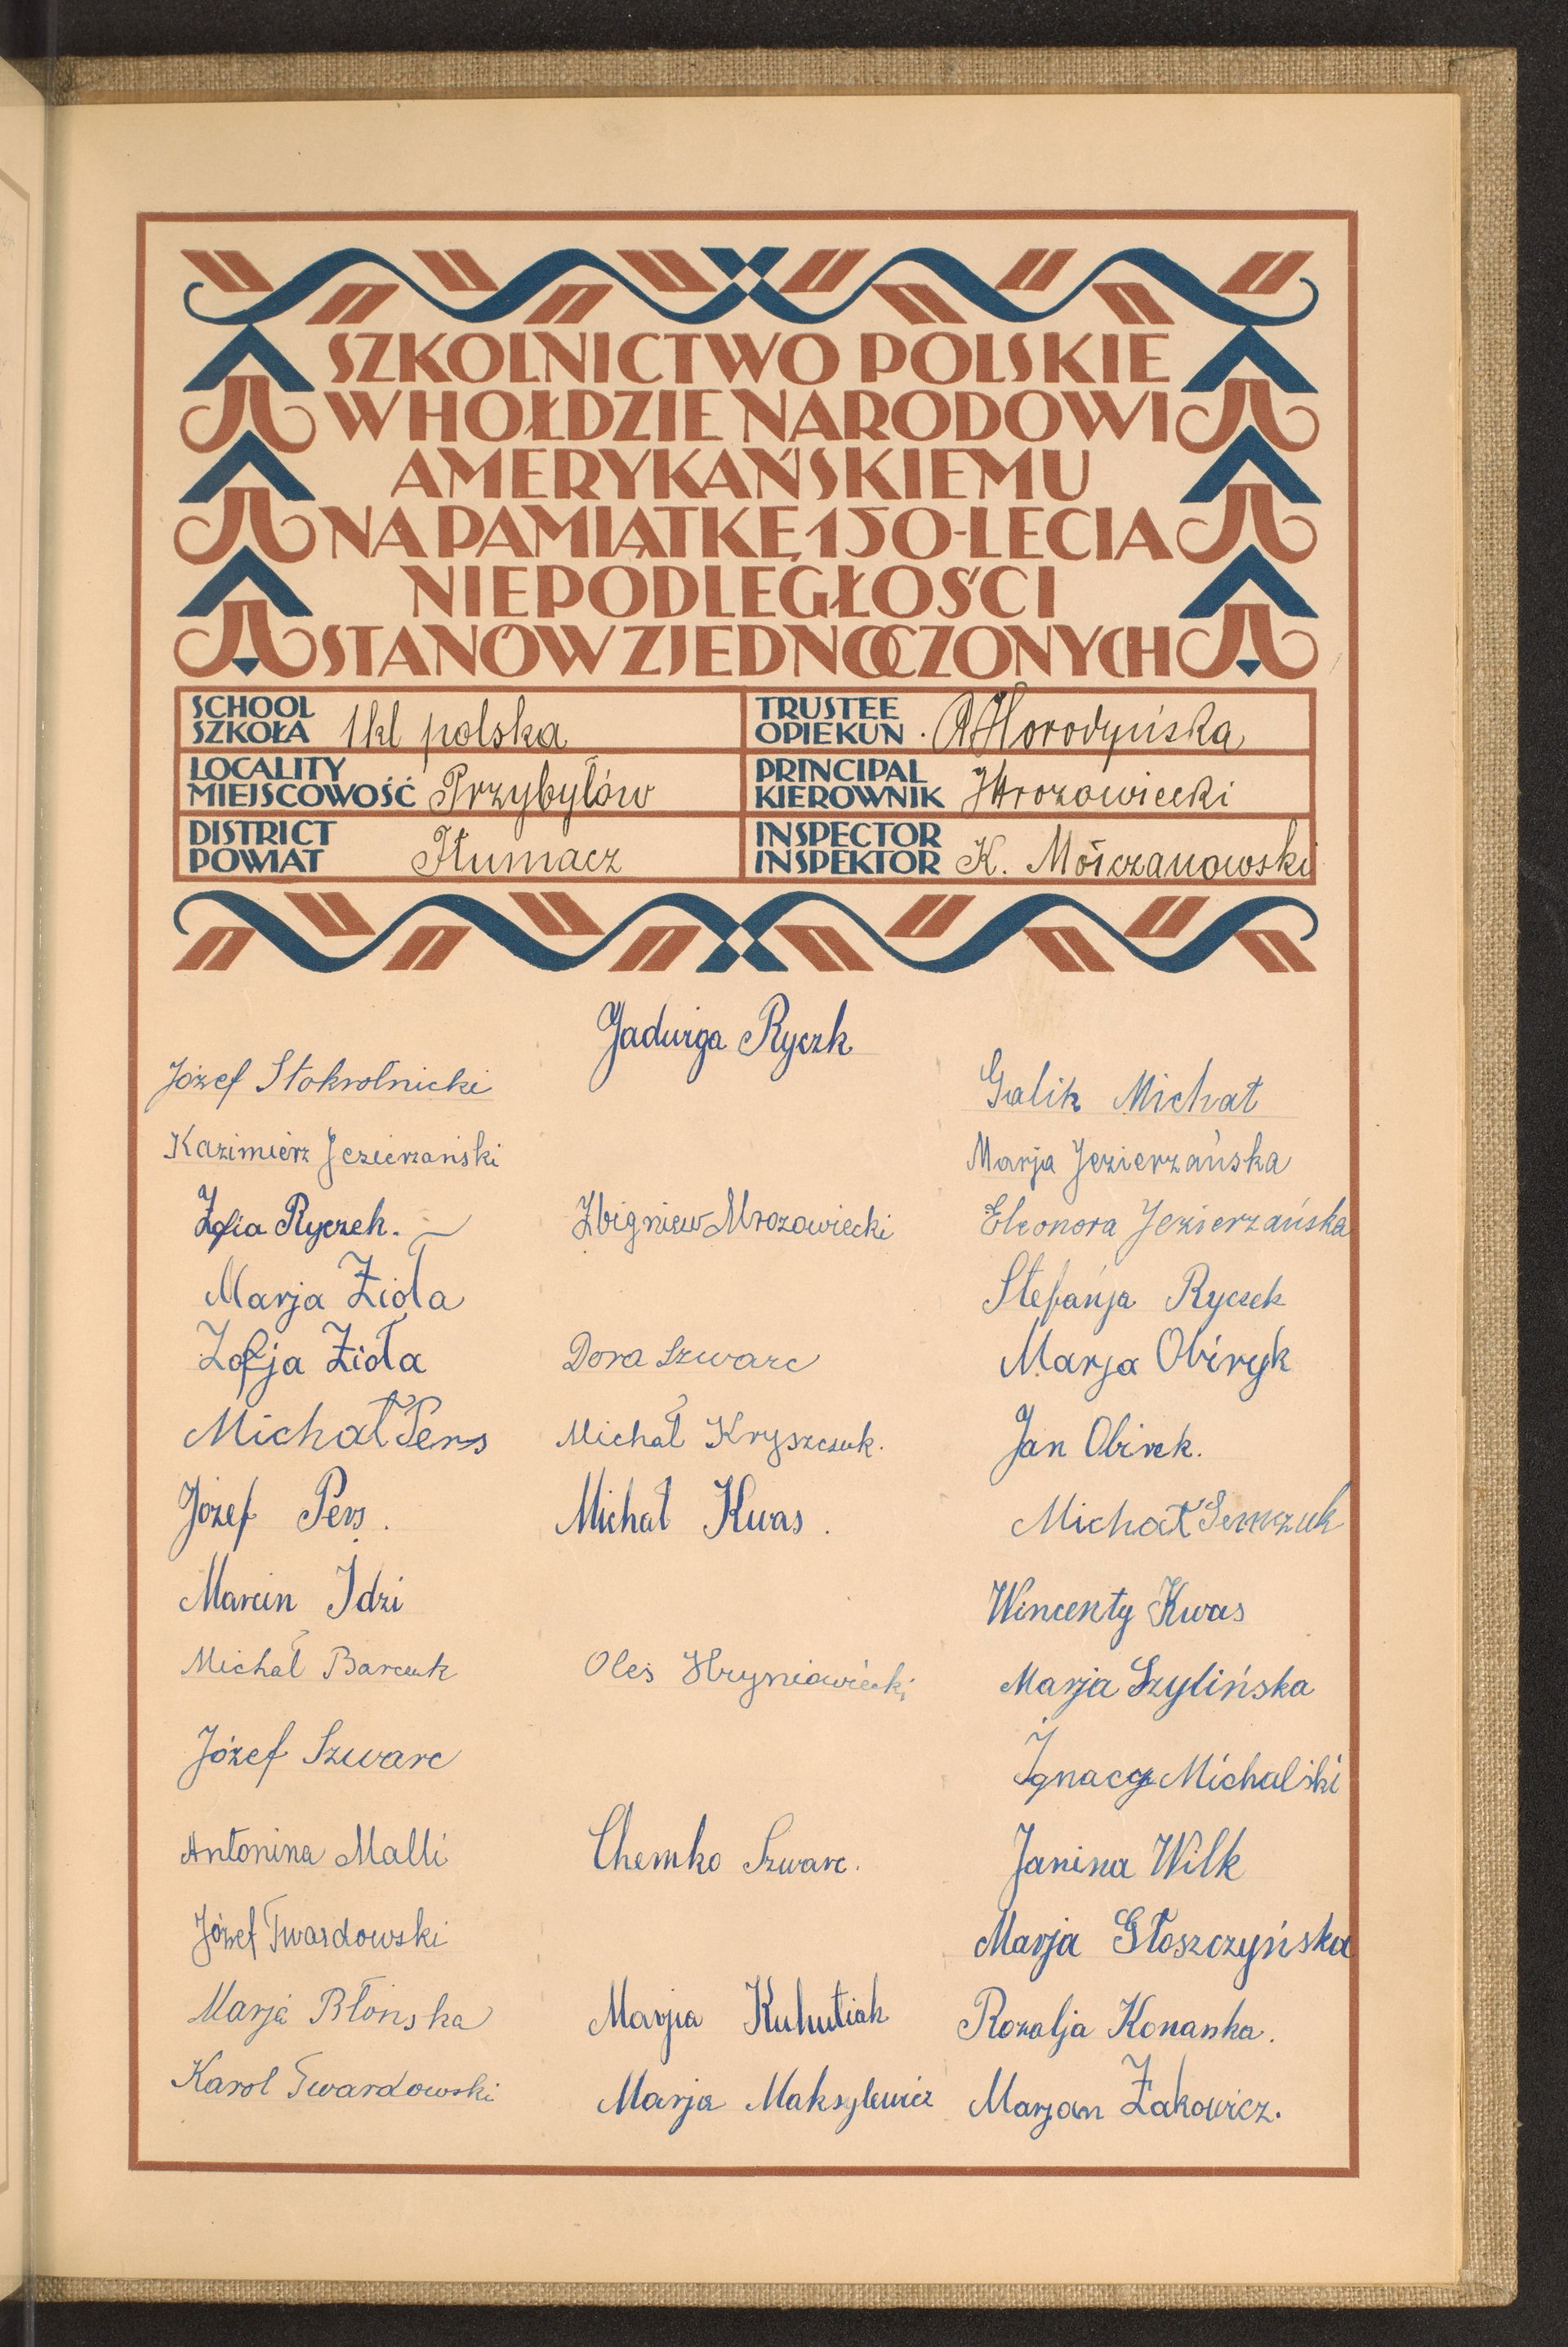 SZKOLNICTWO POLSKIE
W HOŁDZIE NARODOWI
AMERYKAŃSKIEMU
NA PAMIĄTKĘ 150-LECIA
NIEPODLEGŁOŚCI
STANÓW ZJEDNOCZONYCH
SCHOOL
SZKOŁA 1 kl polska
TRUSTEE
OPIEKUN Horodyńska
LOCALITY
MIEJSCOWOŚĆ Przybyłów
PRINCIPAL
KIEROWNIK Mrozowiecki
DISTRICT
POWIAT Tłumacz
INSPECTOR
INSPEKTOR K. Mościzanowski
Jadwiga Ryczk
Józef Stokrotnicki
Kazimierz Jezierzański
Zofia Ryczek.
Marja Zioła
Zofja Zioła
Michał Pers
Józef Pers.
Marcin Idzi
Michał Barczuk
Józef Szwarc
Antonina Malli
Józef Twardowski
Marja Błońska
Karol Twardowski
Zbigniew Mrozowiecki
Dora Szwarc
Michał Kryszczuk.
Michał Kwas.
Oleś Hryniawiecki
Chemko Szwarc.
Marja Kuhutiak
Marja Maksylewicz
Galik Michał
Marja Jezierzańska
Eleonora Jezierzańska
Stefanja Ryczek
Marja Obiryk
Jan Obirek.
Michał Semczuk
Wincenty Kwas
Marja Szylińska
Ignacy Michalski
Janina Wilk
Marja Głoszczyńska
Rozalja Konarska.
Marjan Żakowicz.